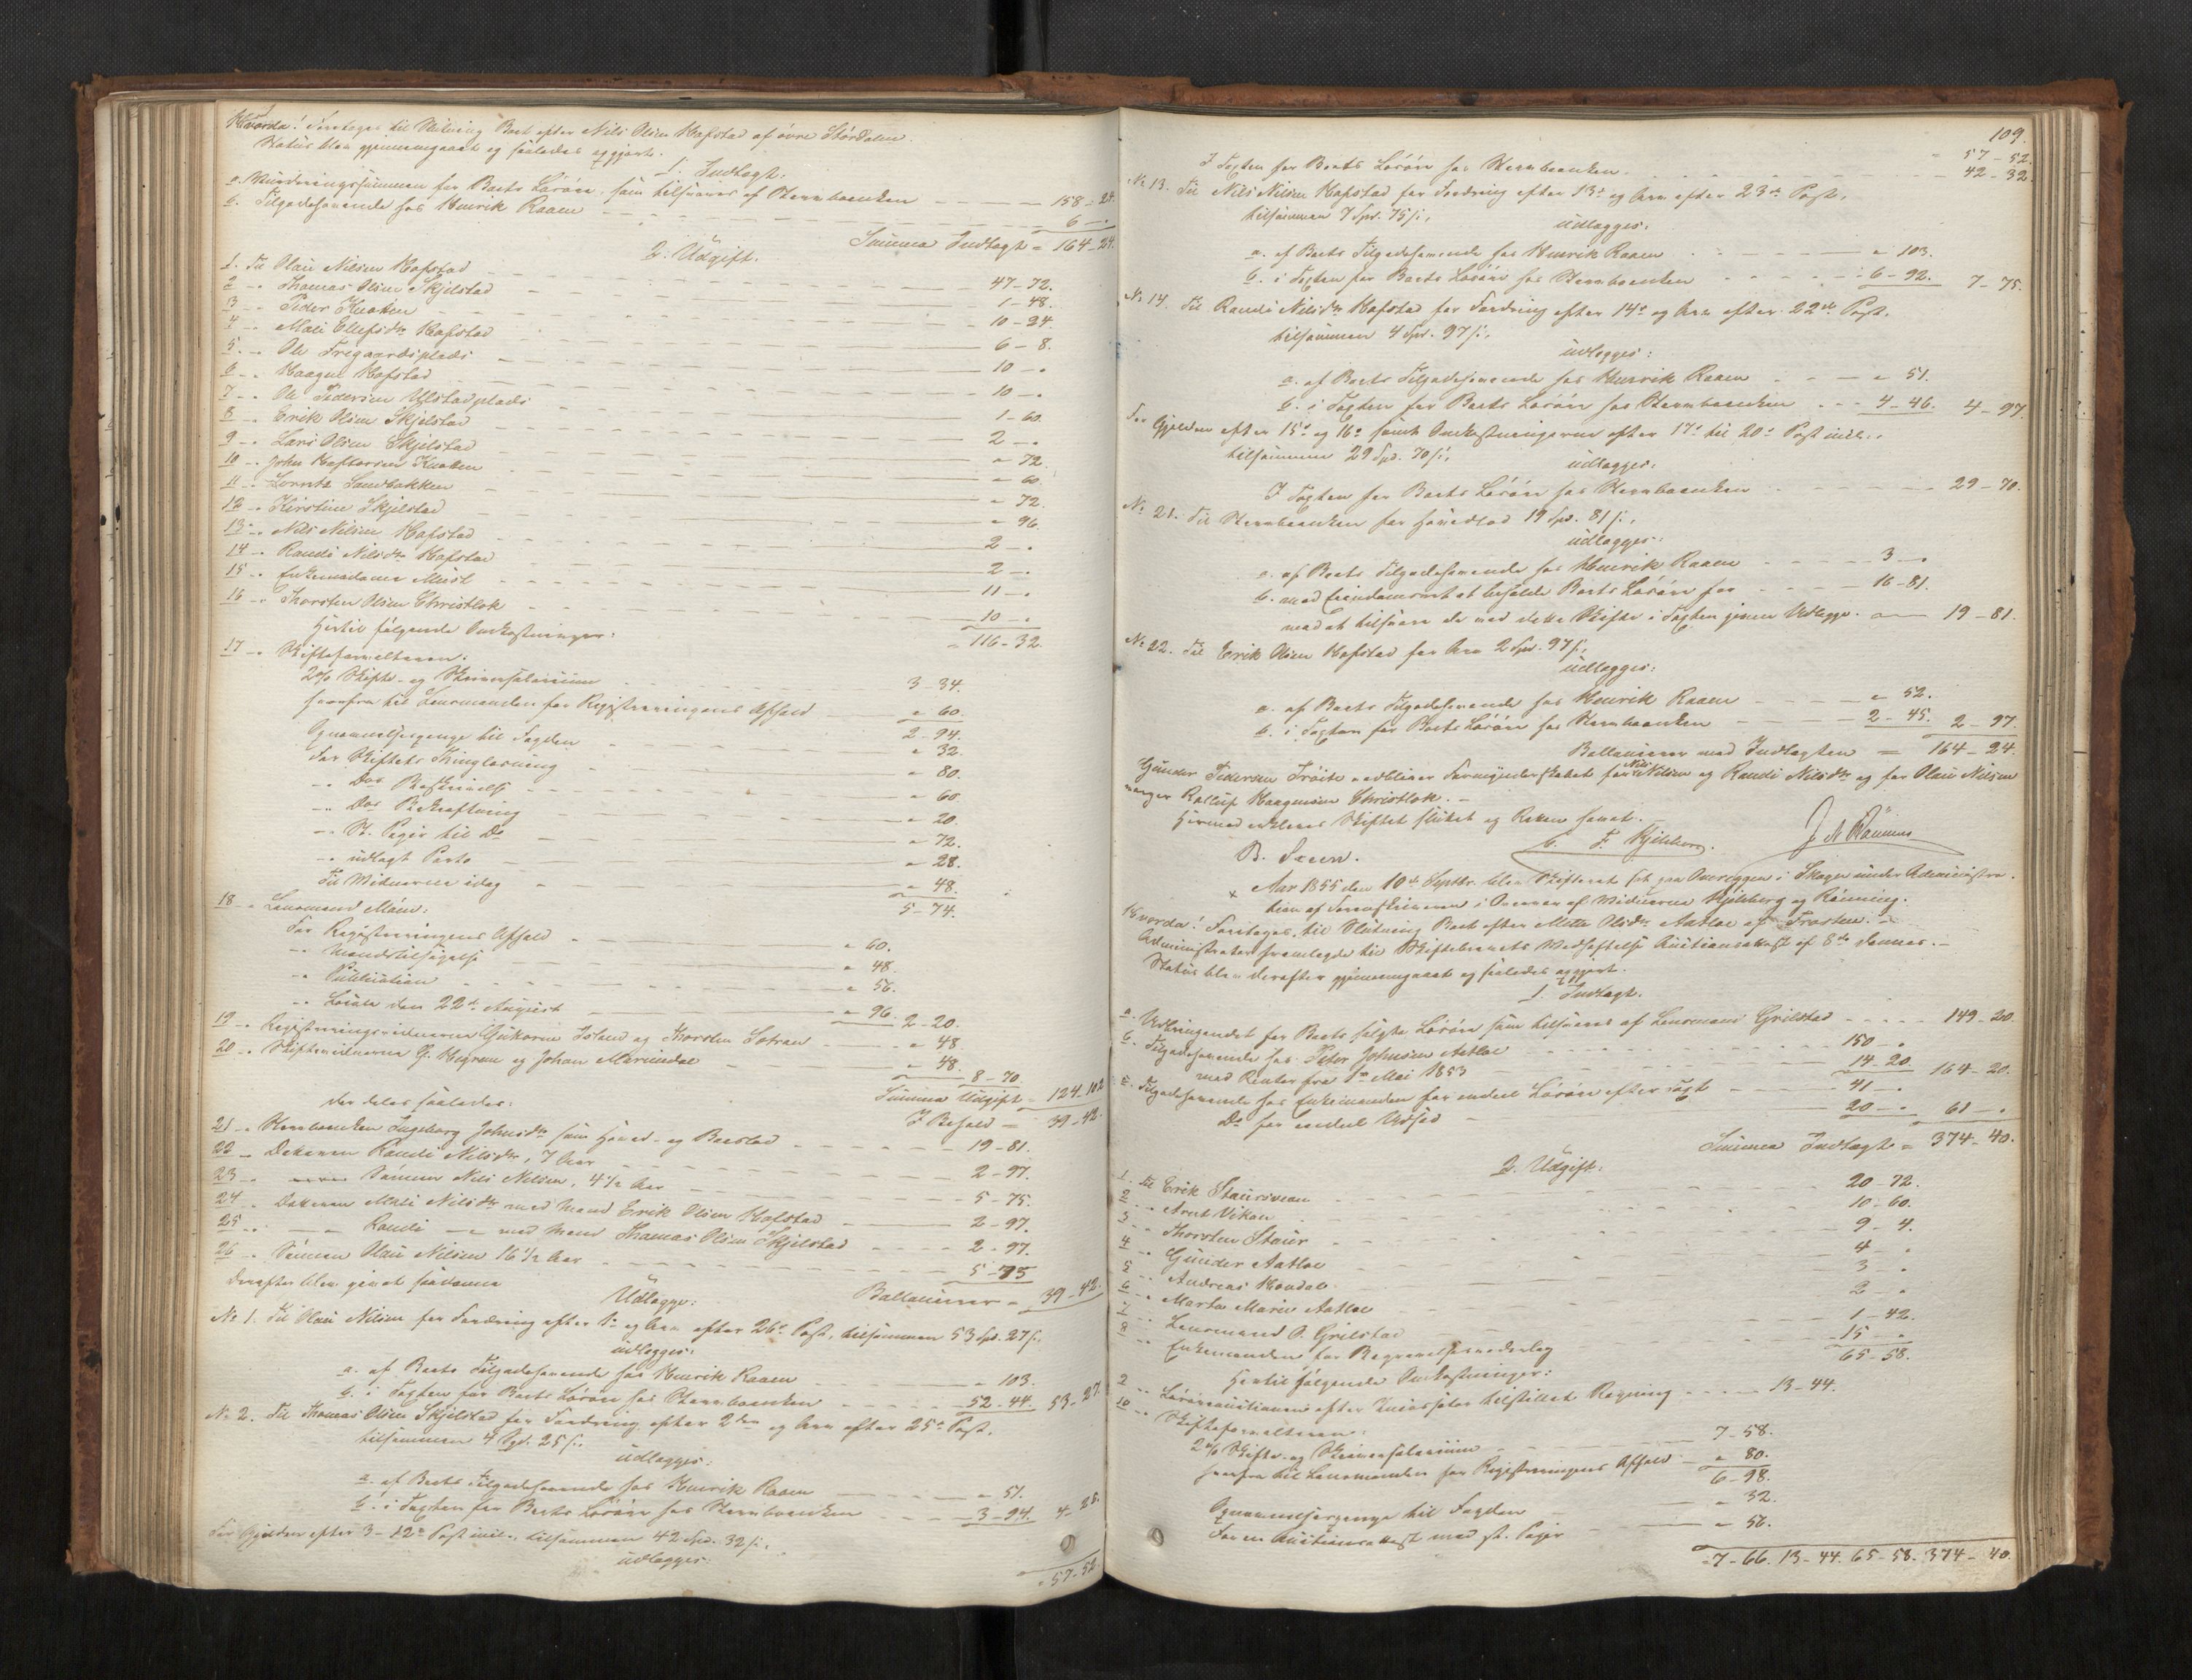 Hvorda! Foretoges til Slutning Boet efter Nils Olsen Hofstad af øvre Størdalen.
Status blev gjennemgaaet og saaledes opgjort.
1. Indtægt.
a. Vurderingssummen for Boets Løsøre, som tilsvares af Stervboenken 158-24.
b. Tilgodehavende hos Henrik Raaen 6-"
Summa Indtægt = 164-24.
2. Udgift.
1. Til Olau Nilsen Hofstad 47-72.
2 -" Thomas Olsen Skjelstad 1-48.
3 -" Peder Kvaken 10-24.
4 -" Mali Ellefsdtr Hofstad 6-8.
5 -" Ole Trøgaardsplads 10-"
6 -" Haagen Hofstad 10-"
7 -" Ole Pedersen Ulstadplads 1-60.
8 -" Erik Olsen Skjelstad 2-"
9 -" Lars Olsen Skjelstad "-72.
10 -" John Haftorsen Kvaken "-60.
11 -" Lorntz Sandbakken "-72.
12 -" Kirstine Skjelstad "-96.
13 -" Nils Nilsen Hofstad 2-"
14 -" Randi Nilsdtr Hofstad 2-"
15 -" Enkemadame Must 11-"
16 -" Thorsten Olsen Christlok 10-"
Hertil følgende Omkostninger: = 116-32.
17 -" Skifteforvalteren:
2% Skifte- og Skriversalarium 3-34.
herfra til Lensmanden for Registreringens Afhold "-60.
2-94.
Gjennemsynspenge til Fogden "-32.
For Skiftets Thinglæsning "-80.
-" Dos Beskrivelse "-60.
-" Dos Bekræftning "-20.
-" St. Papir til Do "-72.
-" udlagt Porto "-28.
Til Vidnerne idag "-48.
5-74.
18 -" Lensmand Moum:
For Registreringens Afhold "-60.
-" Mændstilsigelse "-48.
-" Publication "-56.
-" Loiale den 22de August "-96. 2-20.
19 -" Registreringsvidnerne Gukorn Island og Thorsten Sotran "-48.
20 -" Skiftevidnerne G. Hegram og Johan Mariendal "-48.
8-70.
Summa Udgift = 124-102.
der deles saaledes: I Behold = 39-42.
21 -" Stervboenken Ingeborg Johnsdtr som Hoved- og Boeslod 19-81.
22 -" Datteren Randi Nilsdtr, 7 Aar 2-97.
23 -" Sønnen Nils Nilsen, 4½ Aar 5-75.
24 -" Datteren Mali Nilsdtr med Mand Erik Olsen Hofstad 2-97.
25 -" — Randi —" med Mand Thomas Olsen Skjelstad 2-97.
26 -" Sønnen Olau Nilsen 16½ Aar 5-75
Ballancerer = 39-42.
Derefter blev givet saadanne
Udlægge:
No 1. Til Olau Nilsen for Fordring efter 1ste og Arv efter 26de Post, tilsammen 53 Spd. 27 s.,
udlægges:
a. af Boets Tilgodehavende hos Henrik Raaen "-103.
b. i Taxten for Boets Løsøre hos Stervboenken 52-44. 53-27.
No 2. Til Thomas Olsen Skjelstad for Fordring efter 2den og Arv efter 25de Post,
tilsammen 4 Spd. 25 s.,
udlægges:
a. af Boets Tilgodehavende hos Henrik Raaen "-51.
b. i Taxten for Boets Løsøre hos Stervboenken 3-94. 4-25.
For Gjælden efter 3-12te Post incl., tilsammen 42 Spd. 32 s.,
udlægges:
= 57-52.
109.
57-52.
I Taxten for Boets Løsøre hos Stervboenken 42-32.
No 13. Til Nils Nilsen Hofstad for Fordring efter 13de og Arv efter 23de Post,
tilsammen 7 Spd. 75 s.,
udlægges:
a. af Boets Tilgodehavende hos Henrik Raaen "-103.
b. i Taxten for Boets Løsøre hos Stervboenken 6-92. 7-75.
No 14. Til Randi Nilsdtr Hofstad for Fordring efter 14de og Arv efter 22de Post,
tilsammen 4 Spd. 97 s.,
udlægges:
a. af Boets Tilgodehavende hos Henrik Raaen "-51.
b. i Taxten for Boets Løsøre hos Stervboenken 4-46. 4-97.
For Gjælden efter 15de og 16de samt Omkostningerne efter 17de til 20de Post incl.,
tilsammen 29 Spd. 70 s.,
udlægges:
I Taxten for Boets Løsøre hos Stervboenken 29-70.
No 21. Til Stervboenken for Hovedlod 19 Spd. 81 s.,
udlægges:
a. af Boets Tilgodehavende hos Henrik Raaen 3-"
b. med Eiendomsret at beholde Boets Løsøre for 16-81.
mod at tilsvare de ved dette Skifte i Taxten givne Udlægge. 19-81.
No 22. Til Erik Olsen Hofstad for Arv 2 Spd. 97 s.,
udlægges:
a. af Boets Tilgodehavende hos Henrik Raaen "-52.
b. i Taxten for Boets Løsøre hos Stervboenken 2-45. 2-97.
Ballancerer med Indtægten = 164-24.
Gunder Pedersen Trøite vedbliver Formynderskabet for Nils Nilsen og Randi Nilsdtr og for Olau Nilsen
værger Rolluf Haagensen Christlok.
Hermed erklæres Skiftet sluttet og Retten hævet.
B. Steen. C. F. Kjelsberg. J. N. Rönning
x Aar 1855 den 10de Septbr. blev Skifteret sat paa Overeggen i Skogn under Administra-
tion af Sorenskriveren i Overvær af Vidnerne Kjelsberg og Rønning.
Hvorda! Foretoges til Slutning Boet efter Mette Olsdtr Aatloe af Frosten.
Administrator fremlagde til Skiftebrevets Vedhæftelse Auctionsakvist af 8de dennes.
Status blev derefter gjennemgaaet og saaledes opgjort.
1. Indtægt.
a. Udbringendet for Boets solgte Løsøre som tilsvares af Lensmand Grilstad 149-20.
b. Tilgodehavende hos Peter Johnsen Aatloe 150-"
med Renter fra 1ste Mai 1853 14-20. 164-20.
c. Tilgodehavende hos Enkemanden for endeel Løsøre efter Taxt 41-"
Do for endeel Udsæd 20-" 61-"
Summa Indtægt = 374-40.
2. Udgift.
1. Til Erik Staursveen 20-72.
2 -" Arnt Vikan 10-60.
3 -" Thorsten Staur 9-4.
4 -" Gunder Aatloe 4-"
5 -" Andreas Hovdal 3-"
6 -" Marta Marie Aatloe 2-"
7 -" Lensmand O. Grilstad 1-42.
8 -" Enkemanden for Begravelsesvederlag 15-"
65-58.
Hertil følgende Omkostninger:
9 -" Løsøreauctionen efter tilstillet Regning 13-44.
10 -" Skifteforvalteren:
2% Skifte- og Skriversalarium 7-58.
herfra til Lensmanden for Registreringens Afhold "-80.
6-98.
Gjennemsynspenge til Fogden "-32.
For en Auctionsakvist med st. Papir "-56.
= 7-66. 13-44. 65-58. 374-40.